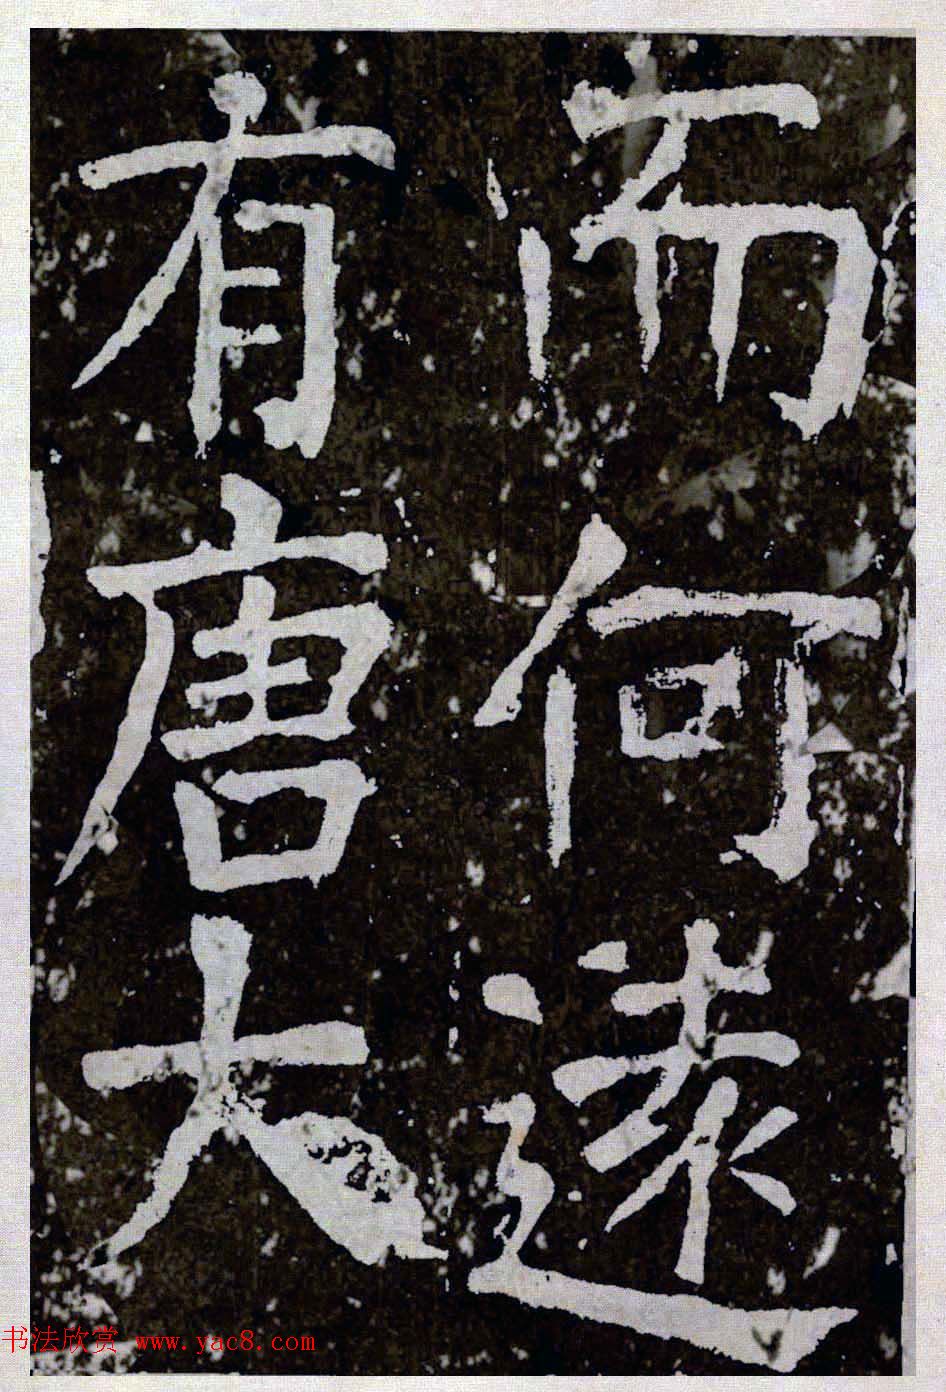 而何遠
有唐大
书法欣赏 www.yac8.com